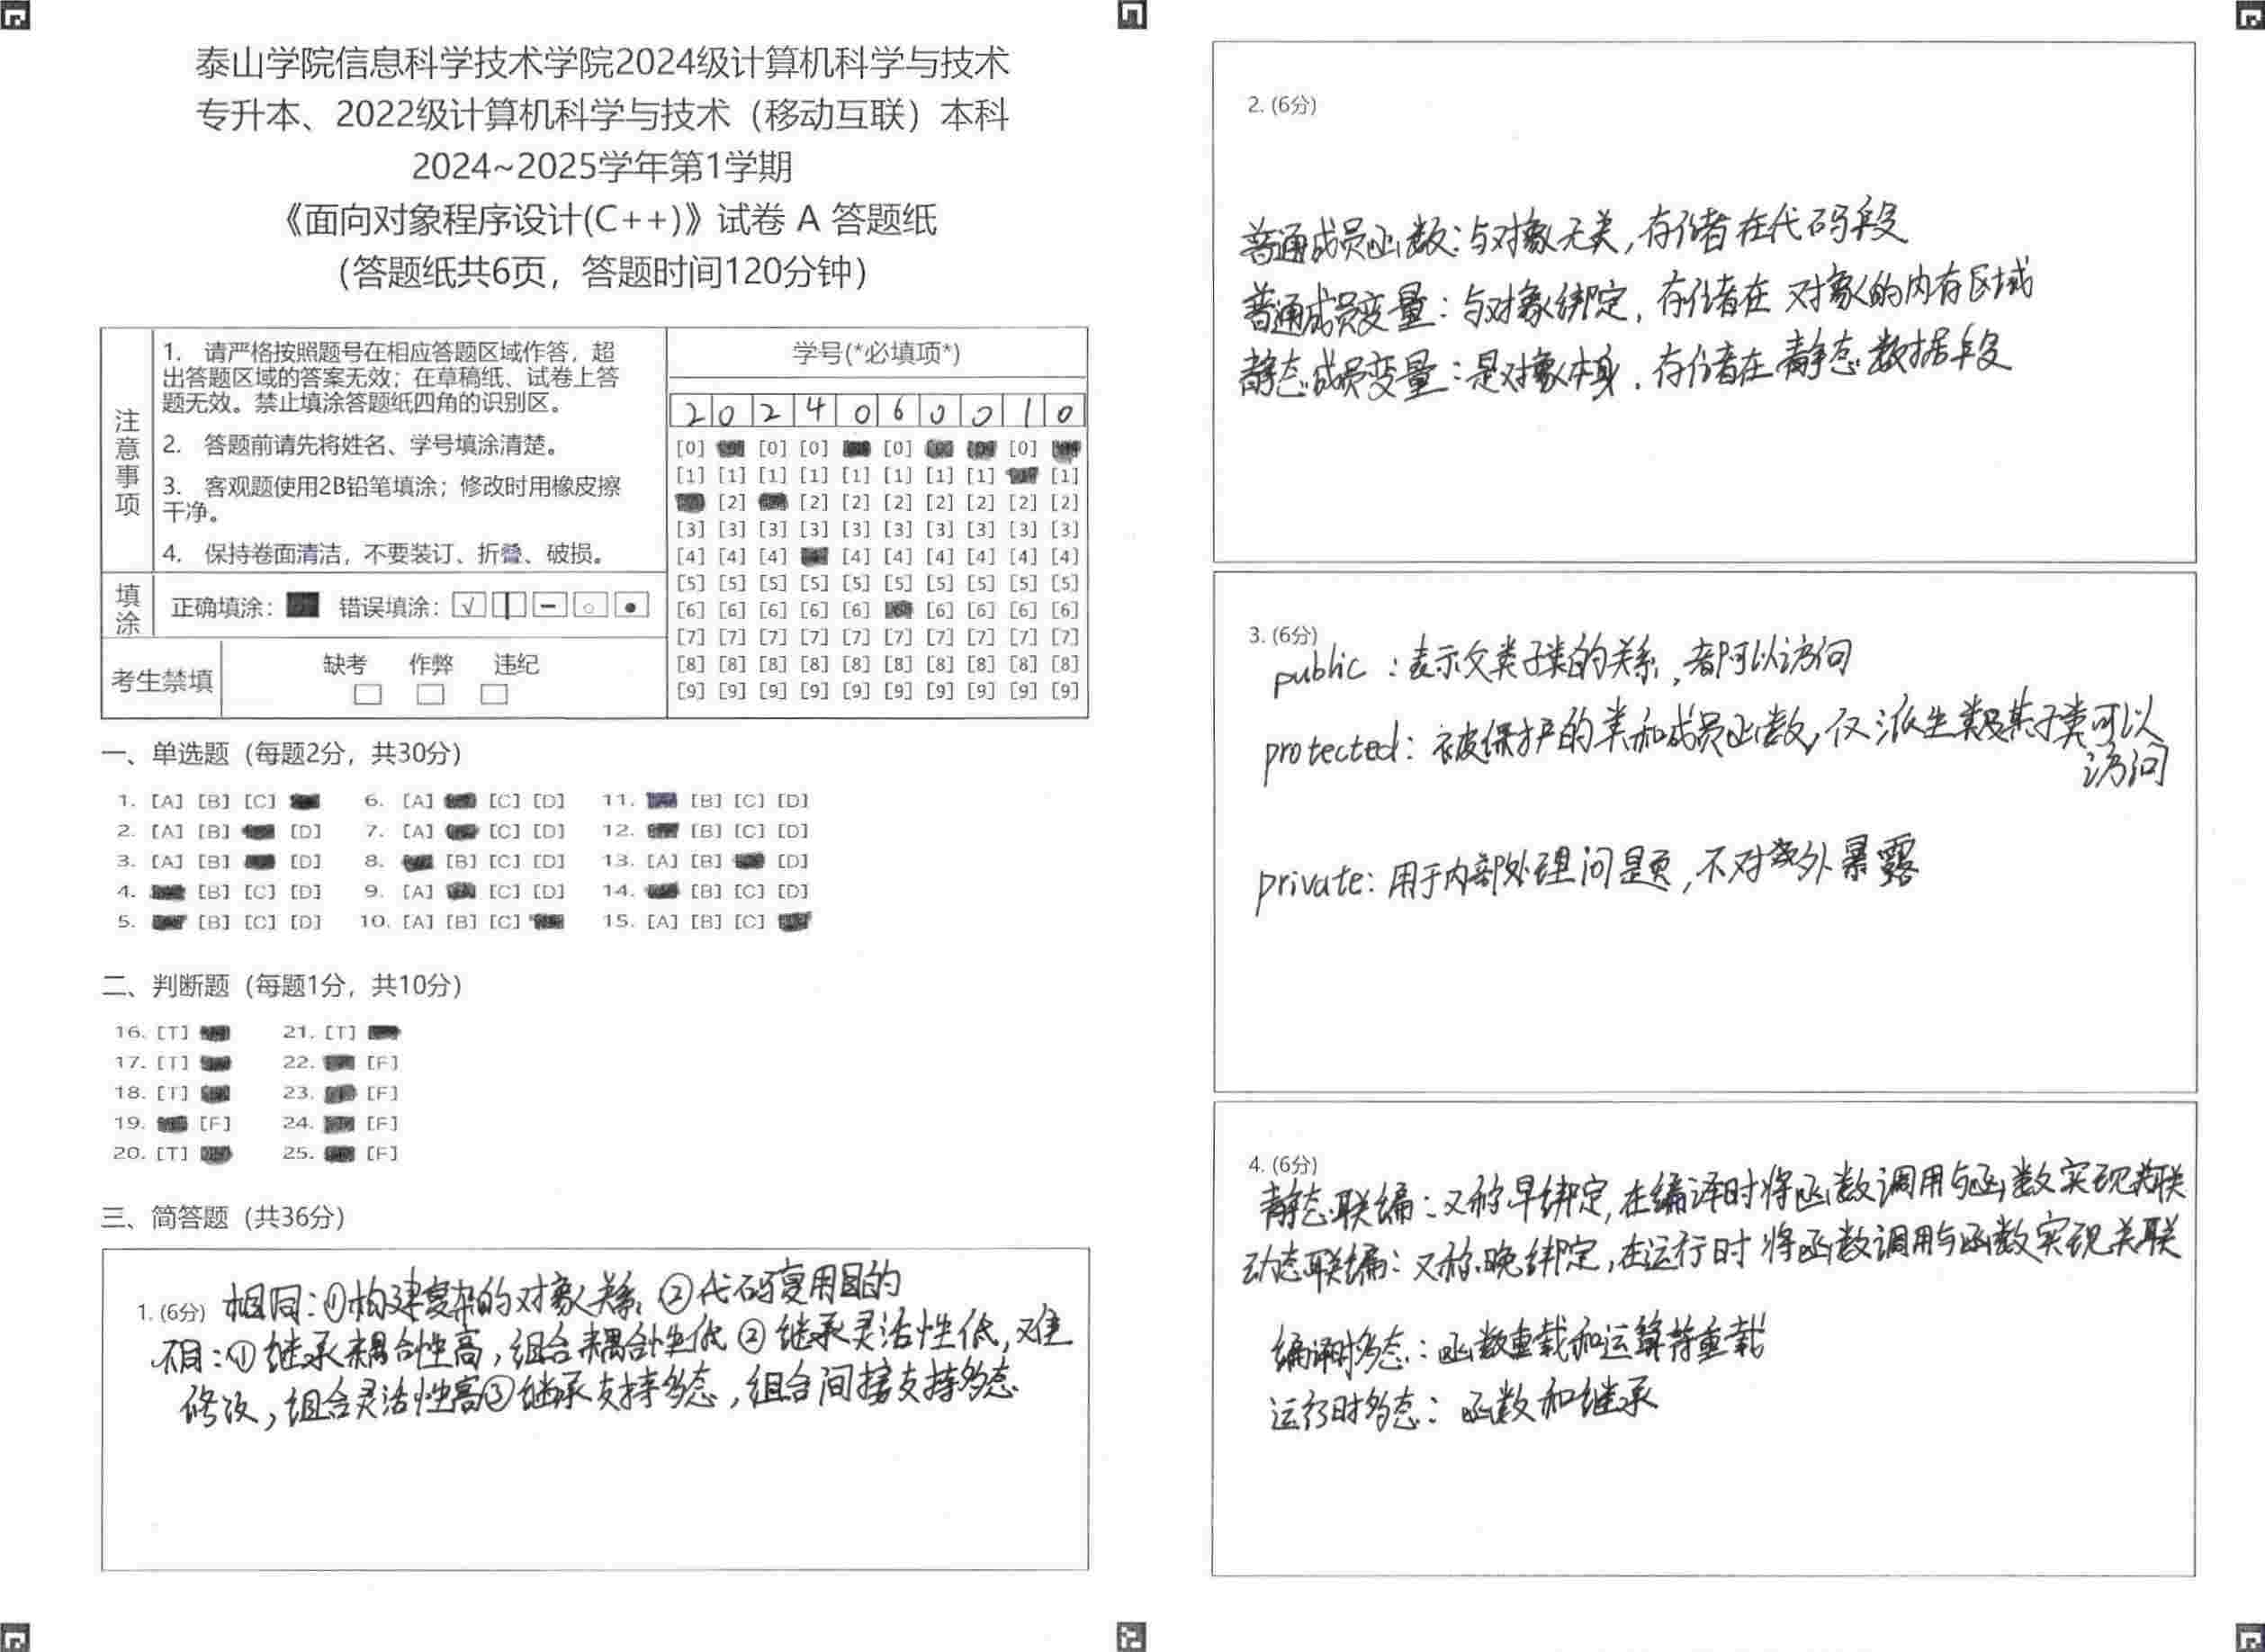 泰山学院信息科学技术学院2024级计算机科学与技术
专升本、2022级计算机科学与技术（移动互联）本科
2024~2025学年第1学期
《面向对象程序设计(C++)》试卷 A 答题纸
（答题纸共6页，答题时间120分钟）
注意事项
1. 请严格按照题号在相应答题区域作答，超
出答题区域的答案无效；在草稿纸、试卷上答
题无效。禁止填涂答题纸四角的识别区。
2. 答题前请先将姓名、学号填涂清楚。
3. 客观题使用2B铅笔填涂；修改时用橡皮擦
干净。
4. 保持卷面清洁，不要装订、折叠、破损。
填涂
正确填涂： 错误填涂：
考生禁填
缺考 作弊 违纪
学号(*必填项*)
2 0 2 4 0 6 0 0 1 0
[0] [0] [0] [0] [0]
[1] [1] [1] [1] [1] [1] [1] [1] [1]
[2] [2] [2] [2] [2] [2] [2] [2]
[3] [3] [3] [3] [3] [3] [3] [3] [3] [3]
[4] [4] [4] [4] [4] [4] [4] [4] [4]
[5] [5] [5] [5] [5] [5] [5] [5] [5] [5]
[6] [6] [6] [6] [6] [6] [6] [6] [6]
[7] [7] [7] [7] [7] [7] [7] [7] [7] [7]
[8] [8] [8] [8] [8] [8] [8] [8] [8] [8]
[9] [9] [9] [9] [9] [9] [9] [9] [9] [9]
一、单选题（每题2分，共30分）
1. [A] [B] [C] 6. [A] [C] [D] 11. [B] [C] [D]
2. [A] [B] [D] 7. [A] [C] [D] 12. [B] [C] [D]
3. [A] [B] [D] 8. [B] [C] [D] 13. [A] [B] [D]
4. [B] [C] [D] 9. [A] [C] [D] 14. [B] [C] [D]
5. [B] [C] [D] 10. [A] [B] [C] 15. [A] [B] [C]
二、判断题（每题1分，共10分）
16. [T] 21. [T]
17. [T] 22. [F]
18. [T] 23. [F]
19. [F] 24. [F]
20. [T] 25. [F]
三、简答题（共36分）
1. (6分) 相同：①构建复杂的对象关系 ②代码复用目的
不同：①继承耦合性高，组合耦合性低 ②继承灵活性低，难
修改，组合灵活性高③继承支持多态，组合间接支持多态
2. (6分)
普通成员函数：与对象无关，存储在代码段
普通成员变量：与对象绑定，存储在 对象的内存区域
静态成员变量：是对象本身，存储在静态数据段
3. (6分)
public：表示父类子类的关系，都可以访问
protected：被保护的类和成员函数，仅派生类及其子类可以
访问
private：用于内部处理问题，不对外暴露
4. (6分)
静态联编：又称早绑定，在编译时将函数调用与函数实现关联
动态联编：又称晚绑定，在运行时将函数调用与函数实现关联
编译时多态：函数重载和运算符重载
运行时多态：函数和继承